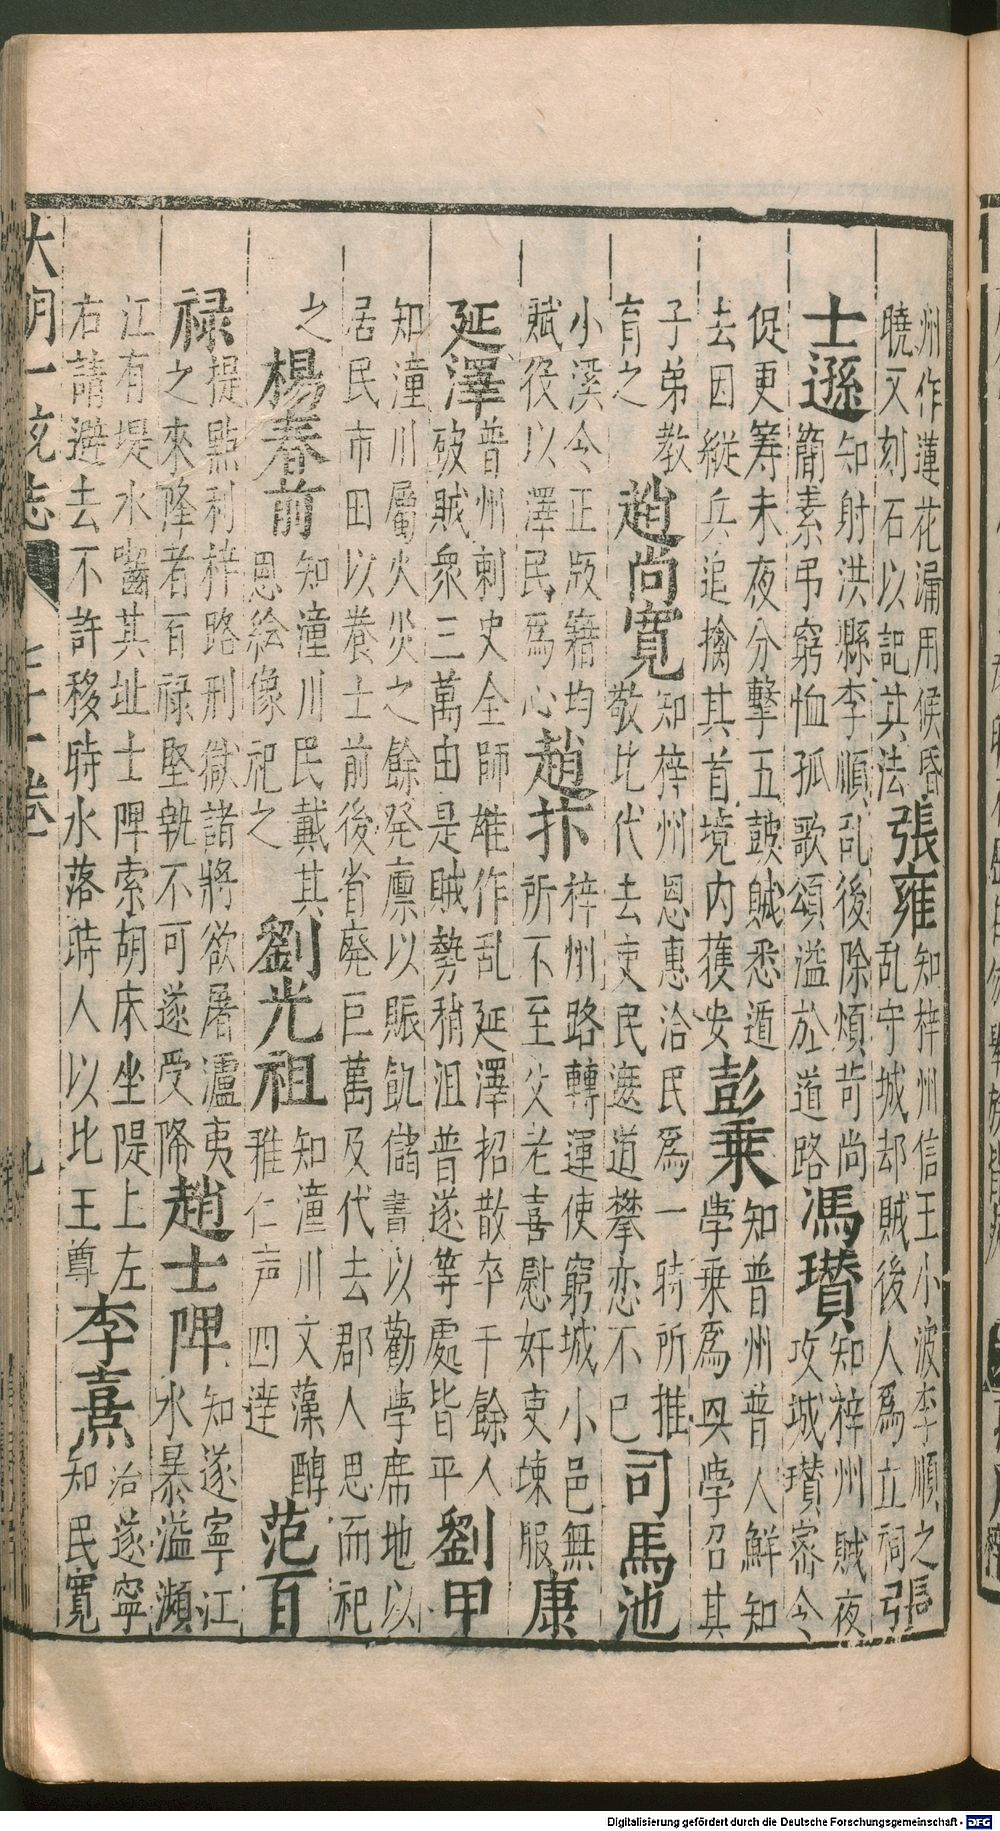 州作蓮花漏用候昏
曉又刻石以記其法
張雍
知梓州信王小波李順之
乱守城却賊後人爲立祠
張
士遜
知射洪縣李順乱後除煩苛尚
簡素弔窮恤孤歌頌溢於道路
馮瓚
知梓州賊夜
攻城瓚密令
促更筹未夜分擊五鼓賊悉遁
去因縱兵追擒其首境内獲安
彭乗
知普州普人鮮知
學乗爲㒷學召其
子弟教
育之
趙尚寛
知梓州恩惠洽民爲一時所推
敬比代去吏民遮道攀恋不已
司馬池
小溪令正版籍均
賦役以澤民爲心
趙抃
梓州路轉運使窮城小邑無
所不至父老喜慰奸吏竦服
康
延澤
普州刺史全師雄作乱延澤招散卒千餘人
破賊衆三萬由是賊勢稍沮普遂等處皆平
劉甲
知潼川屬火災之餘発廪以賑飢儲書以勸學席地以
居民市田以養士前後省廃巨萬及代去郡人思而祀
之
楊春前
知潼川民戴其
恩絵像祀之
劉光祖
知潼川文藻醇
雅仁声四逹
范百
禄
提點利梓路刑獄諸將欲屠瀘夷
之來降者百禄堅執不可遂受降
趙士
知遂寧江
水暴溢瀕
江有堤水嚙其址士索胡床坐隄上左
右請避去不許移時水落時人以比王尊
李熹
治遂寧
知民寬
大明一统志 七十一卷 九
Digitalisierung gefördert durch die Deutsche Forschungsgemeinschaft - DFG